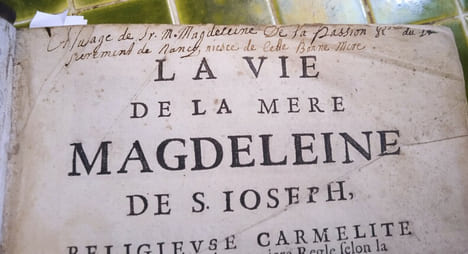 A l'usage de Sr. M. Magdeleine De la Passion du St
sacrement de Nancy, niesce de Cette Bonne Mere
LA VIE
DE LA MERE
MAGDELEINE
DE S. IOSEPH,
RELIGIEVSE CARMELITE
Regle selon la